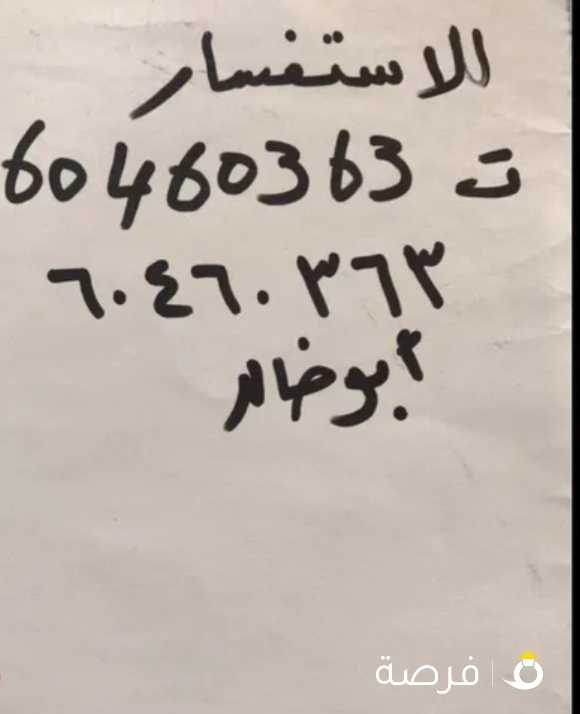 للاستفسار
ت 60460363
٦٠٤٦٠٣٦٣
أبو خالد
فرصة